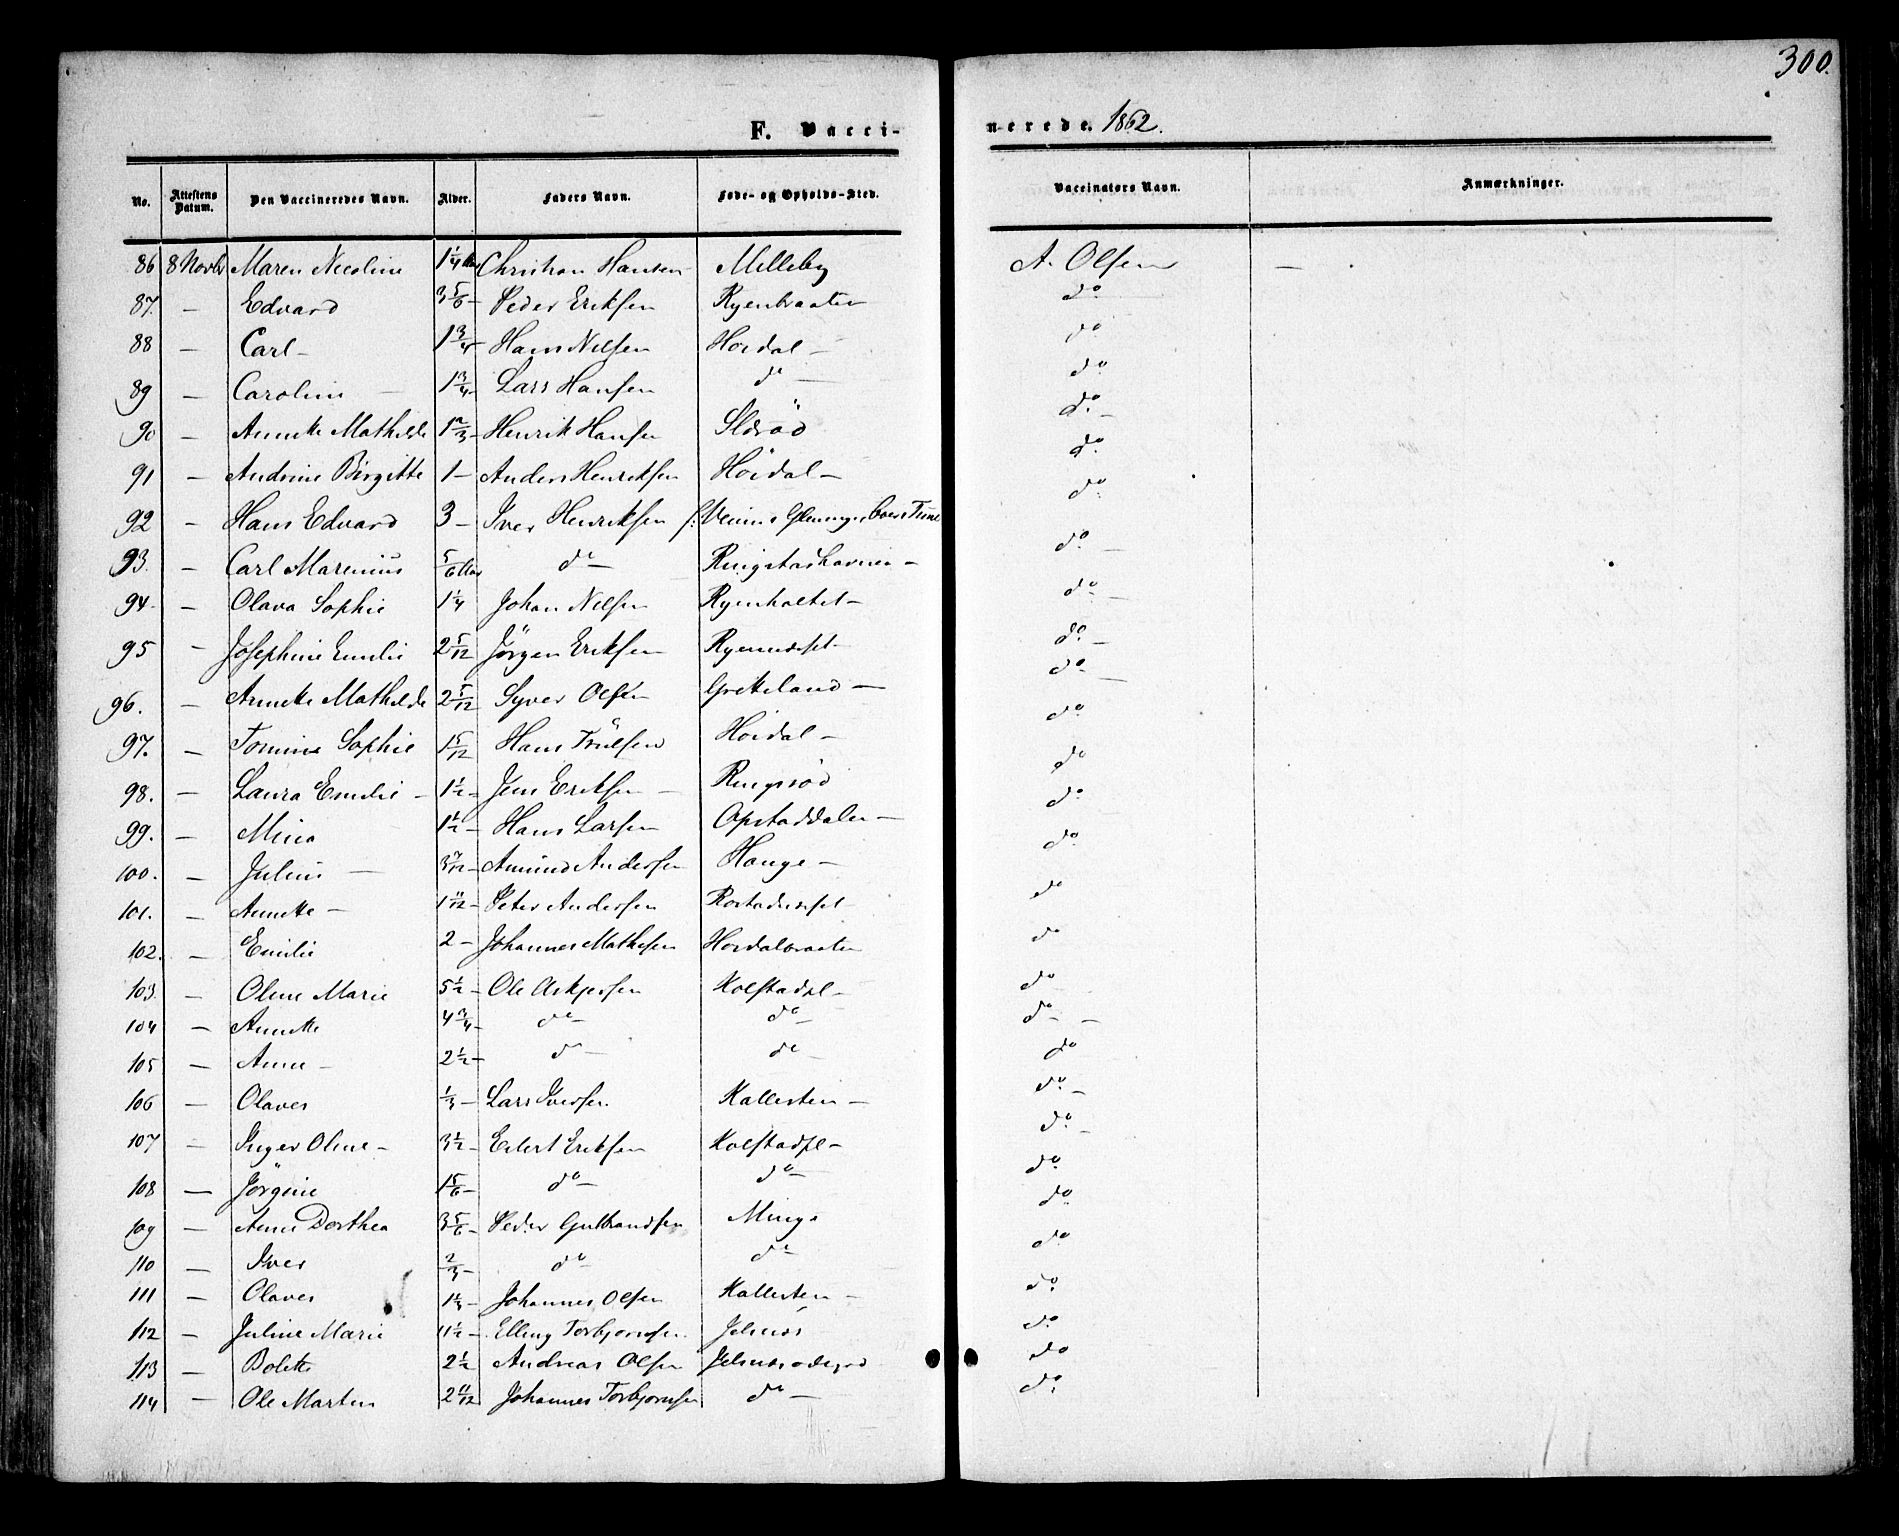 300.
F. Vacci-
nerede. 1862.
No. Attestens Datum. Den Vaccineredes Navn. Alder. Faders Navn. Føde- og Opholds-Sted. Vaccinators Navn. Anmærkninger.
86 8 Novbr Maren Nicoline 1 1/4 Christian Hansen Milleby A. Olsen —
87. — Edvard 3 5/6 — Peder Eriksen Ryenbraaten do
88 — Carl — 1 3/4 Hans Nilsen Hoidal — do
89 — Caroline — 1 3/4 Lars Hansen do — do
90 — Annette Mathilde 1 2/3 — Henrik Hansen do. —
91 — Andrine Birgitte 1 — Anders Henriksen Höidal — do
92 — Hans Edvard 3 — Iver Henriksen Tune do
93. — Carl Marenius 5/6 do — do. —
94. — Olava Sophie 1 1/4 Johan Nilsen Ryenholtet — do —
95 — Josephine Emilie 2 5/12 Jörgen Eriksen do —
96. — Annette Mathilde 2 5/12 Syver Olsen Grekeland — do —
97. — Tomine Sophie 1 5/12 Hans Trülsen Hoidal — do
98. — Laura Emilie — 1 1/2 — Jens Eriksen — Ringsöd do
99. — Mina 1 1/2 — Hans Larsen Opstaddalen — do
100. — Julius — 3 7/12 — Amünd Andersen Hauge — do
101. — Annette — 1 11/12 — Peter Andersen do
102. — Emilie 2 — Johannes Mathesen Hoidalbraaten do
103. — Oline Marie 5 1/2 — Ole Askjersen Kolstadpl — do
104 — Annette 4 3/4 — do — do — do — —
105 — Anne — 2 1/2 — do — do — do
106 — Olaves 1/3 — Lars Iversen Kallesten — do —
107 — Inger Oline — 3 1/2 — Eilert Eriksen Kolstadpl — do —
108 — Jörgine 1 5/6 — do — do — do
109 — Anne Dorthea 3 5/6 — Peder Gulbrandsen Minge do
110 — Iver 2/3 — do — do — do
111 — Olaves 1 1/3 — Johannes Olsen Kallesten — do
112 — Juline Marie 11 1/2 — Elling Torbjørnsen do
113 — Bolette 2 1/2 Andreas Olsen do
114 — Ole Martin 2 11/12 Johannes Torbjornsen do — do